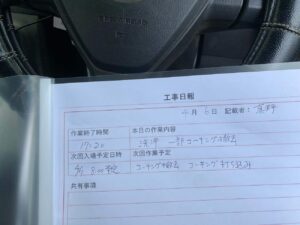 工事日報
月 6日 記載者:
作業終了時間 本日の作業内容
17:20 洗浄 一部コーキング撤去
次回入場予定日時 次回作業予定
8:00予定 コーキング撤去 コーキング打
共有事項